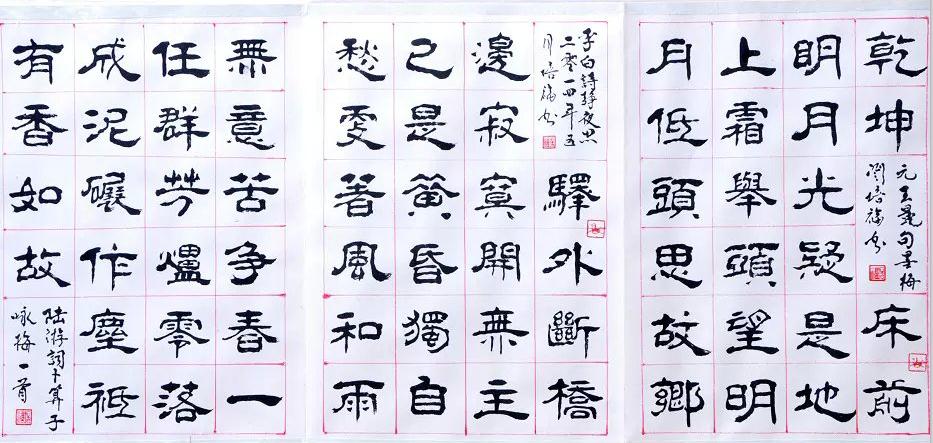 乾坤
元王冕句墨梅
培福书
床前
明月光疑是地
上霜舉頭望明
月低頭思故鄉
李白詩静夜思
二零一四年五
月培福书
驛外斷橋
邊寂寞開無主
已是黄昏獨自
愁更著風和雨
無意苦争春一
任群芳零落
成泥碾作塵祗
有香如故
陸游詞卜算子
咏梅一首